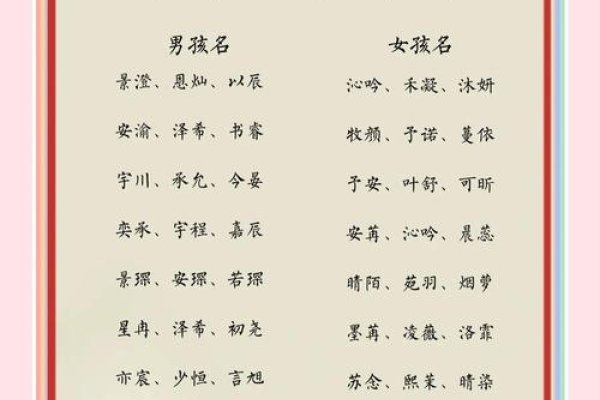 男孩名 女孩名
景澄、恩灿、以辰 沁吟、禾凝、沐妍
安渝、泽希、书睿 牧颜、予诺、蔓依
宇川、承允、今晏 予安、叶舒、可昕
奕承、宇程、嘉辰 安苒、沁吟、晨蕊
景琛、安琛、若琛 晴陌、苑羽、烟萝
星冉、泽希、初尧 墨苒、凌薇、洛霏
亦宸、少恒、言旭 苏念、熙茉、晴染